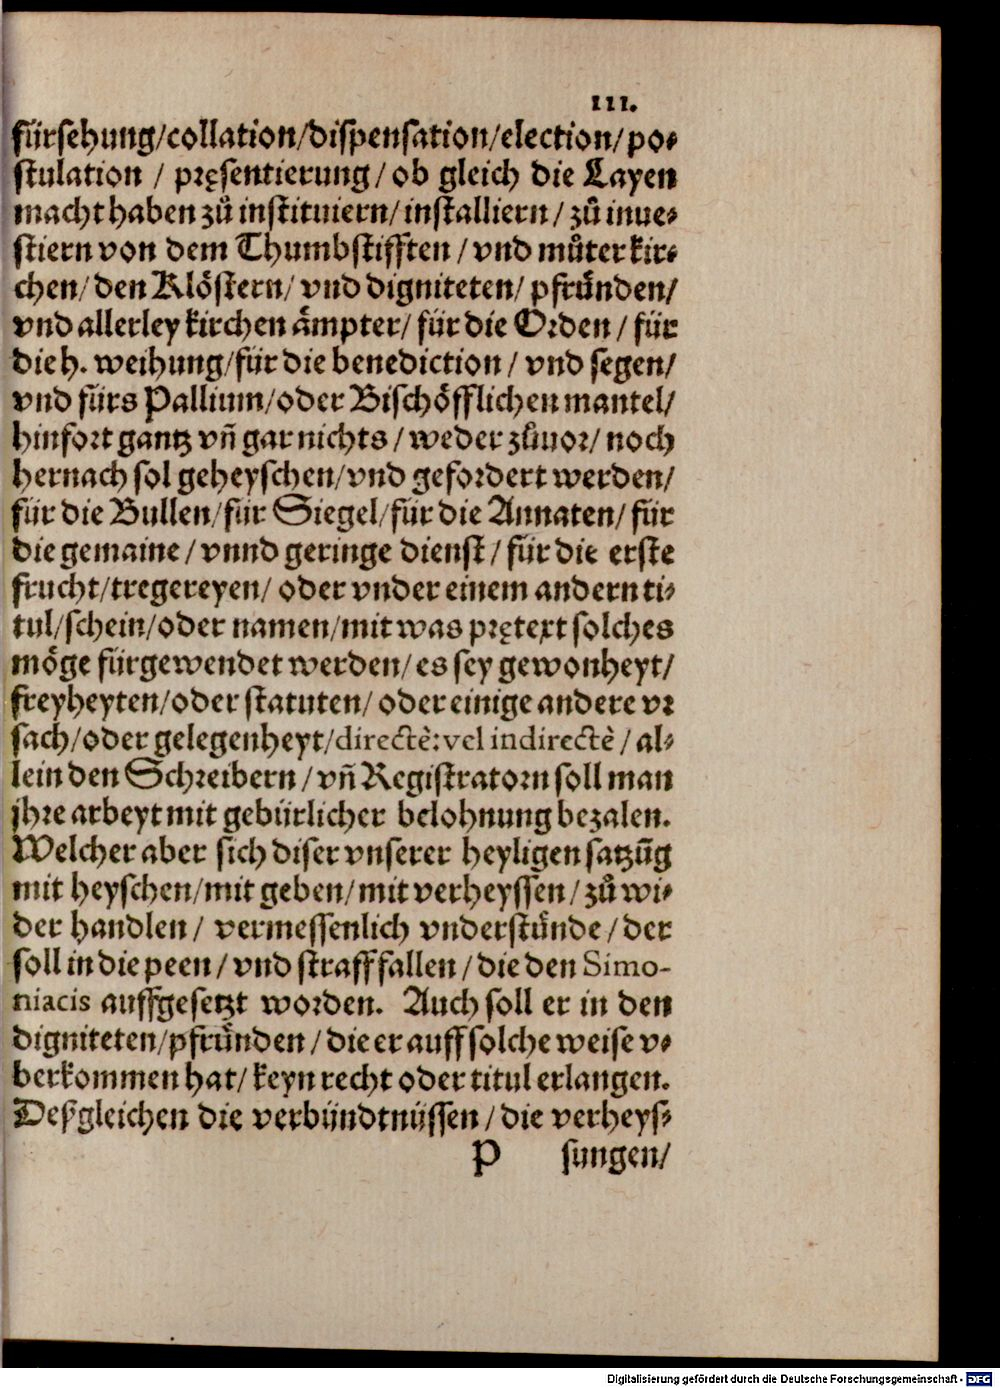 111.
fürsehung/collation/dispensation/election/po⸗
stulation / pręsentierung/ ob gleich die Layen
macht haben zů instituiern/ installiern / zů inue⸗
stiern von dem Thumbstifften / vnd můterkir⸗
chen/ den Klöstern/ vnd digniteten/ pfründen/
vnd allerley kirchen ämpter/ für die Orden / für
die h. weihung/für die benediction / vnd segen/
vnd fürs Pallium/oder Bischöfflichen mantel/
hinfort gantz vñ gar nichts / weder zůuor/ noch
hernach sol geheyschen/vnd gefordert werden/
für die Bullen/für Siegel/für die Annaten/ für
die gemaine / vnnd geringe dienst / für die erste
frucht/tregereyen/ oder vnder einem andern ti⸗
tul/schein/oder namen/mit was prętext solches
möge fürgewendet werden/ es sey gewonheyt/
freyheyten/oder statuten/ oder einige andere vr
sach/oder gelegenheyt/directè: vel indirectè / al⸗
lein den Schreibern / vñ Registratorn soll man
jhre arbeyt mit gebürlicher belohnung bezalen.
Welcher aber sich diser vnserer heyligen satzūg
mit heyschen/mit geben/mit verheyssen / zů wi⸗
der handlen / vermessenlich vnderstünde / der
soll in die peen/ vnd straff fallen / die den Simo-
niacis auffgesetzt worden. Auch soll er in den
digniteten/pfründen / die er auff solche weise v⸗
berkommen hat/ keyn recht oder titul erlangen.
Deßgleichen die verbündtnüssen / die verheys⸗
P sungen/
Digitalisierung gefördert durch die Deutsche Forschungsgemeinschaft - DFG